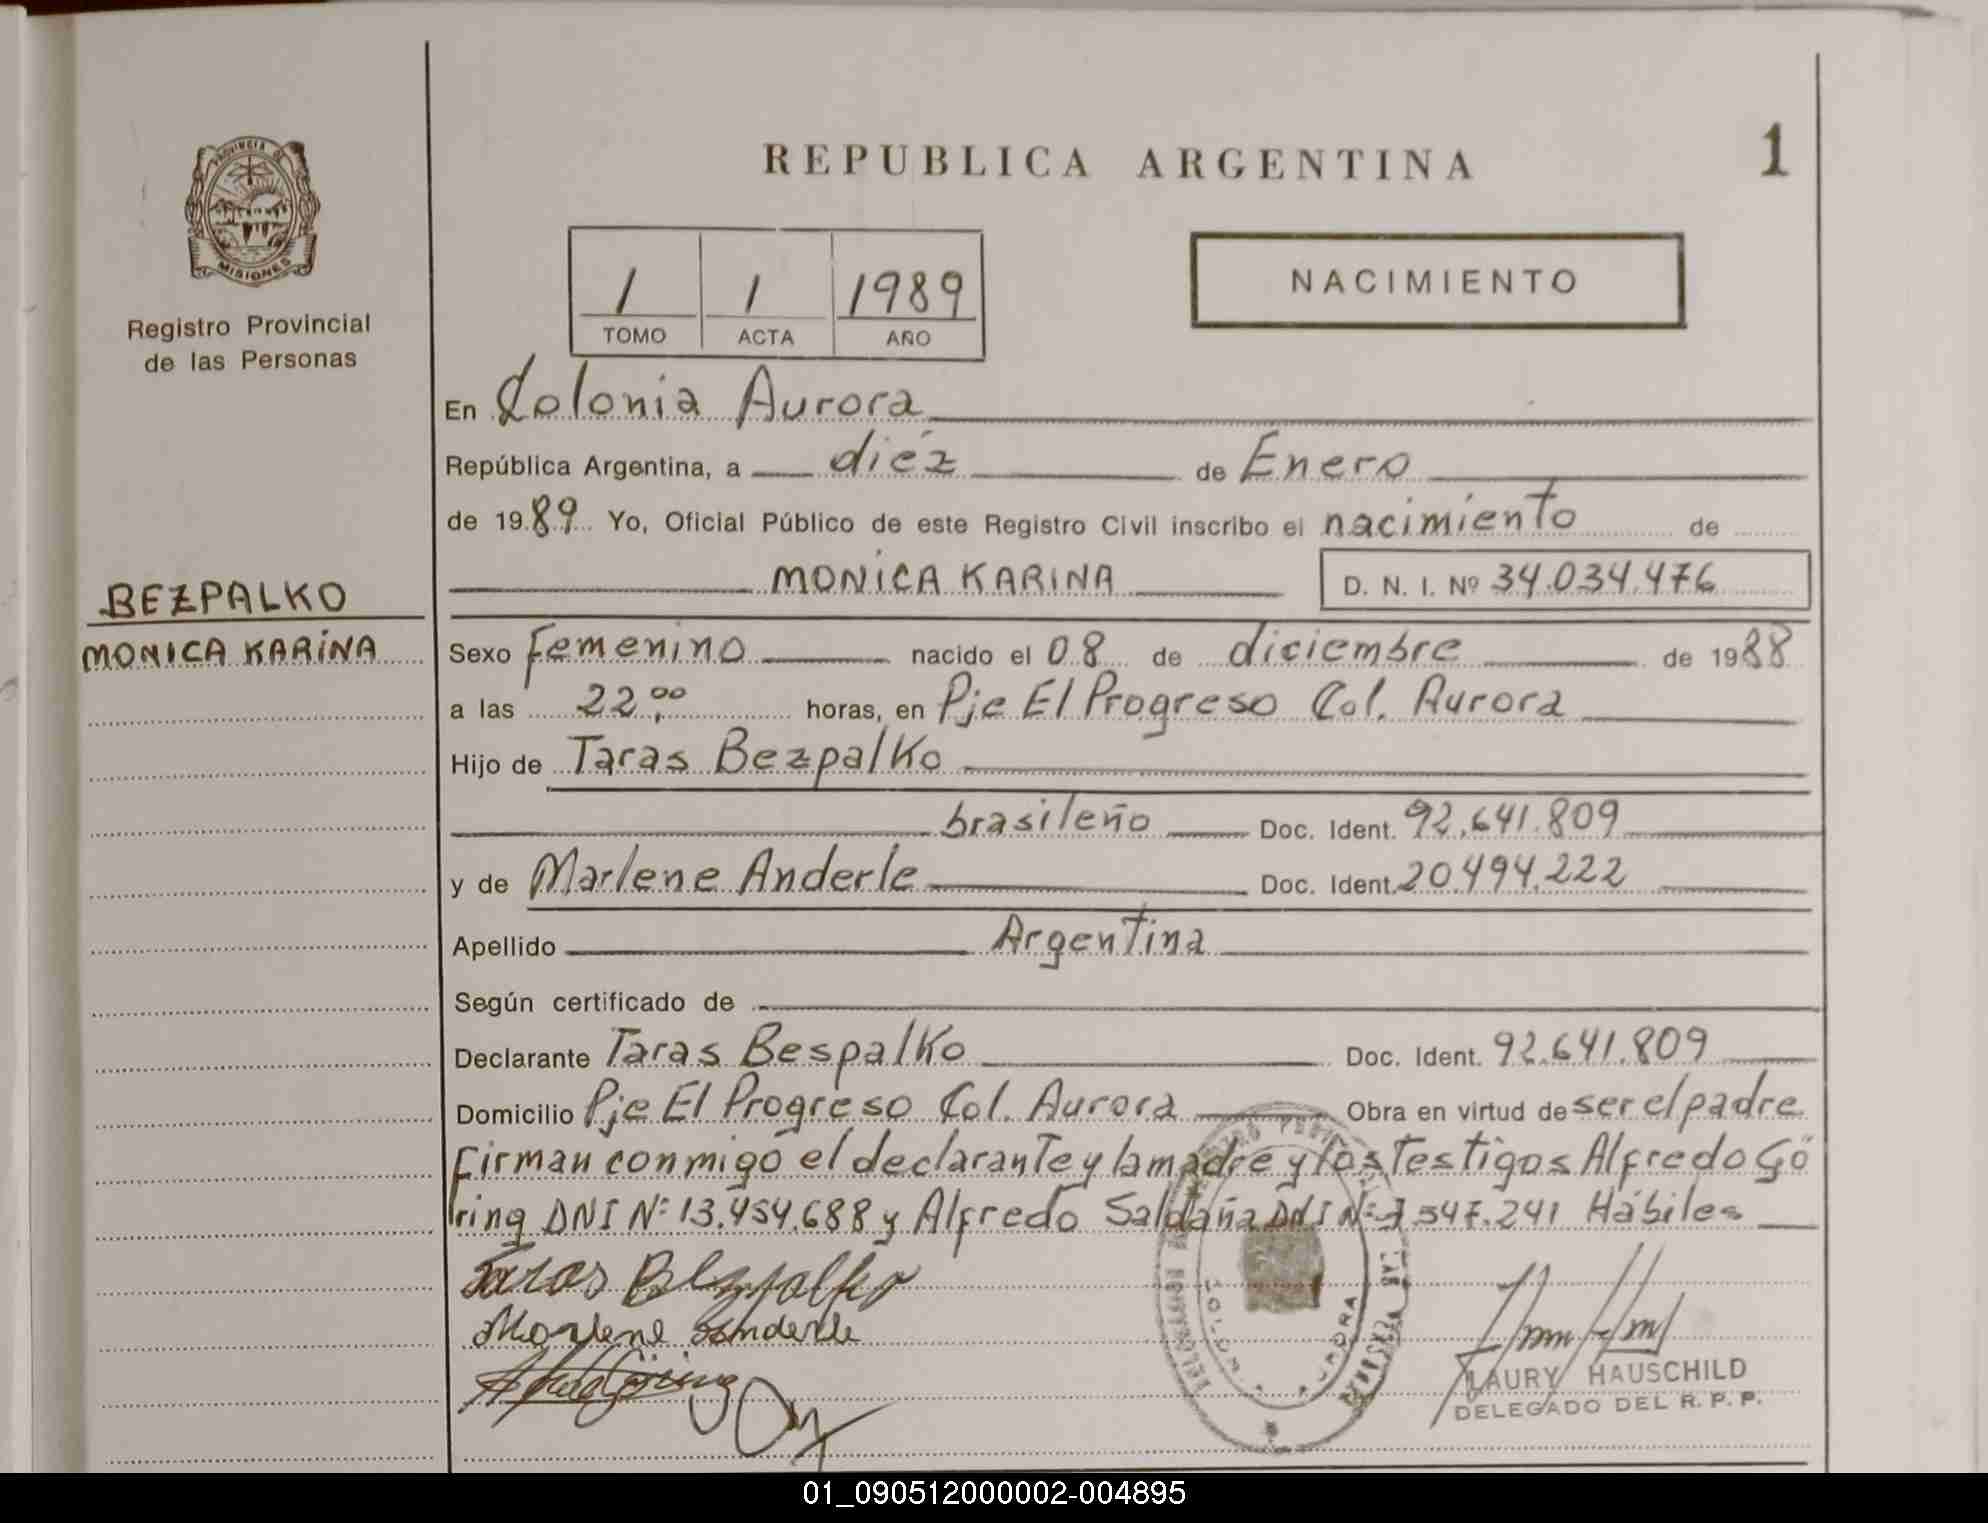 PROVINCIA DE
MISIONES
Registro Provincial
de las Personas
BEZPALKO
MONICA KARINA
REPUBLICA ARGENTINA
1
1 1 1989
TOMO ACTA AÑO
NACIMIENTO
En Colonia Aurora
República Argentina, a diéz de Enero
de 1989 Yo, Oficial Público de este Registro Civil inscribo el nacimiento de
MONICA KARINA D. N. I. Nº 34.034.476
Sexo Femenino nacido el 08 de diciembre de 1988
a las 22,00 horas, en Pje El Progreso Col. Aurora
Hijo de Taras Bezpalko
brasileño Doc. Ident. 92.641.809
y de Marlene Anderle Doc. Ident. 20.494.222
Apellido Argentina
Según certificado de
Declarante Taras Bespalko Doc. Ident. 92.641.809
Domicilio Pje El Progreso Col. Aurora Obra en virtud de ser el padre
Firman conmigo el declarante y la madre y los Testigos Alfredo Gö
ring DNI Nº 13.454.688 y Alfredo Saldaña DNI Nº 7.547.241 Hábiles
Taras Bezpalko
Marlene Anderle
COLONIA AURORA
LAURY HAUSCHILD
DELEGADO DEL R. P. P.
01_090512000002-004895